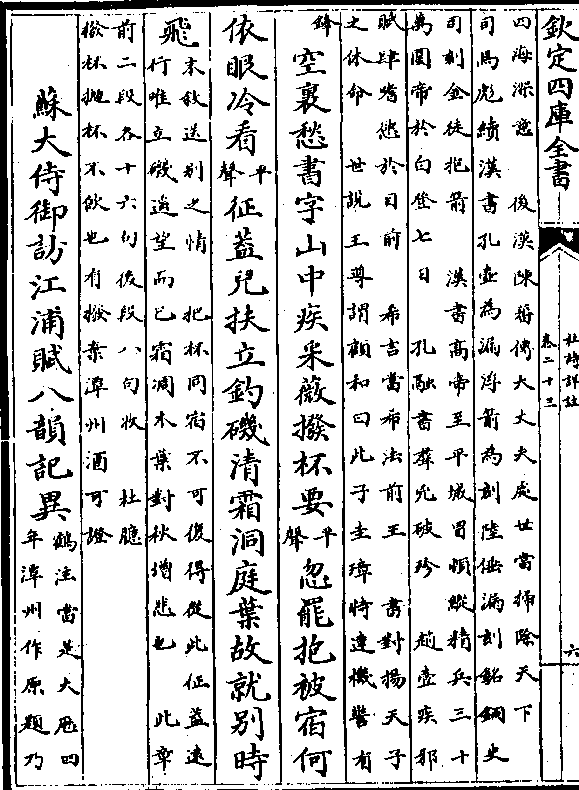 欽定四庫全書
杜詩詳註
卷二十三
六
四海深意　後漢陳蕃傳大丈夫處世當掃除天下
司馬彪續漢書孔壺為漏浮箭為刻陸倕漏刻銘銅史
司刻金徒抱箭　漢書高帝至平城冒頓縱精兵三十
萬圍帝於白登七日　孔融書羣兇破殄　趙壹疾邪
賦肆嗜慾於目前　希言當布法前王　書對揚天子
之休命　世說王導謂顧和曰此子圭璋特達機警有
鋒空裏愁書字山中疾采薇撥杯要平聲忽罷抱被宿何
依眼冷看平聲征蓋兒扶立釣磯清霜洞庭葉故就別時
飛末敘送別之情　把杯同宿不可復得從此征蓋遠
行唯立磯遠望而已霜凋木葉對秋增悲也　此章
前二段各十六句後段八句收　杜臆
撥杯拋杯不飲也有撥棄潭州酒可證
蘇大侍御訪江浦賦八韻記異鶴注當是大厯四
年潭州作原題乃